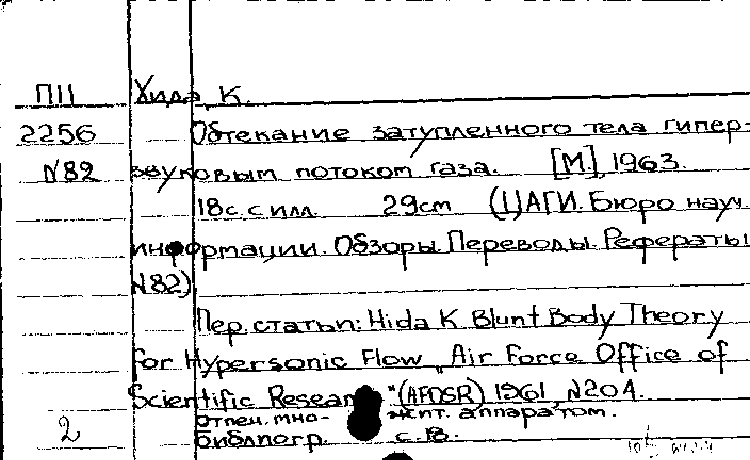 ПII Хида, К.
2256 Обтекание затупленного тела гипер-
N82 звуковым потоком газа. [М], 1963.
18с. с илл. 29см (ЦАГИ. Бюро науч.
информации. Обзоры. Переводы. Рефераты
N82)
Пер. статьи: Hida K Blunt Body Theory
for Hypersonic Flow „Air Force Office of
Scientific Resear "(AFOSR) 1961, N204.
Отпеч. мно- жит. аппаратом.
2 Библиогр. с. 18.